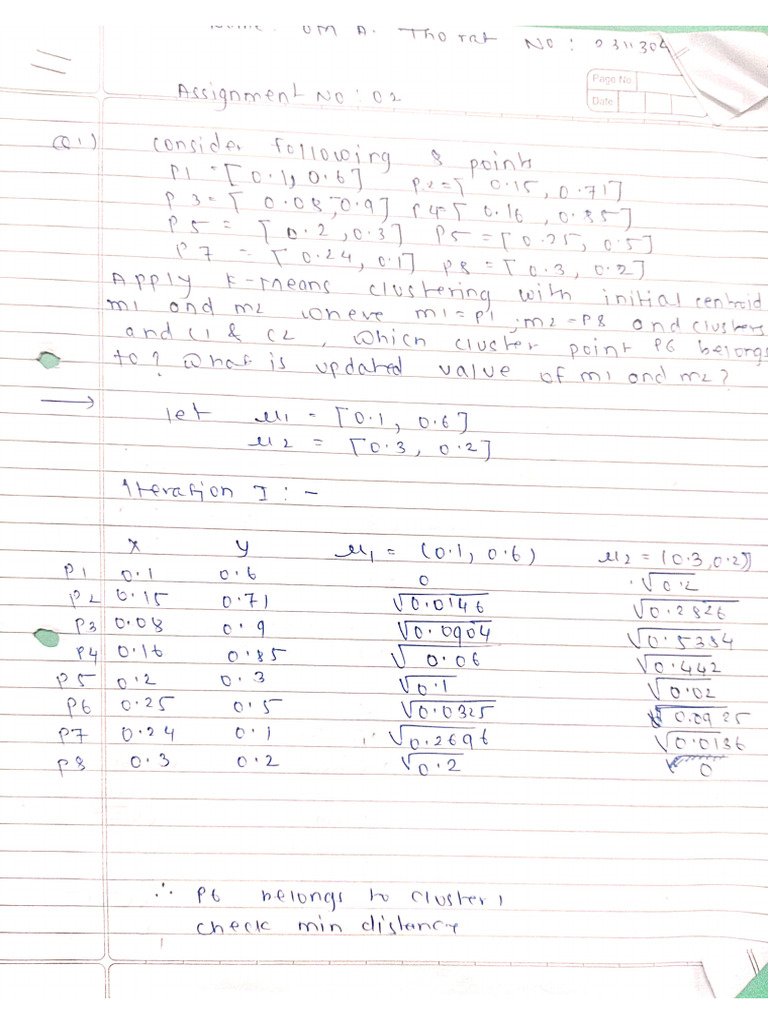 Name: OM A. Thorat No: 2311304
Assignment No: 02
Page No.
Date
Q1) Consider following 8 points
P1 = [0.1, 0.6] P2 = [0.15, 0.71]
P3 = [0.08, 0.9] P4 = [0.16, 0.85]
P5 = [0.2, 0.3] P5 = [0.25, 0.5]
P7 = [0.24, 0.1] P8 = [0.3, 0.2]
Apply K-means clustering with initial centroid
m1 and m2 where m1 = P1, m2 = P8 and clusters
and C1 & C2, which cluster point P6 belongs
to? What is updated value of m1 and m2?
→ let μ1 = [0.1, 0.6]
μ2 = [0.3, 0.2]
Iteration I :-
x y μ1 = (0.1, 0.6) μ2 = (0.3, 0.2)]
P1 0.1 0.6 0 √0.2
P2 0.15 0.71 √0.0146 √0.2826
P3 0.08 0.9 √0.0904 √0.5384
P4 0.16 0.85 √0.06 √0.442
P5 0.2 0.3 √0.1 √0.02
P6 0.25 0.5 √0.0325 √0.0925
P7 0.24 0.1 √0.2696 √0.0136
P8 0.3 0.2 √0.2 0
∴ P6 belongs to cluster 1
check min distance